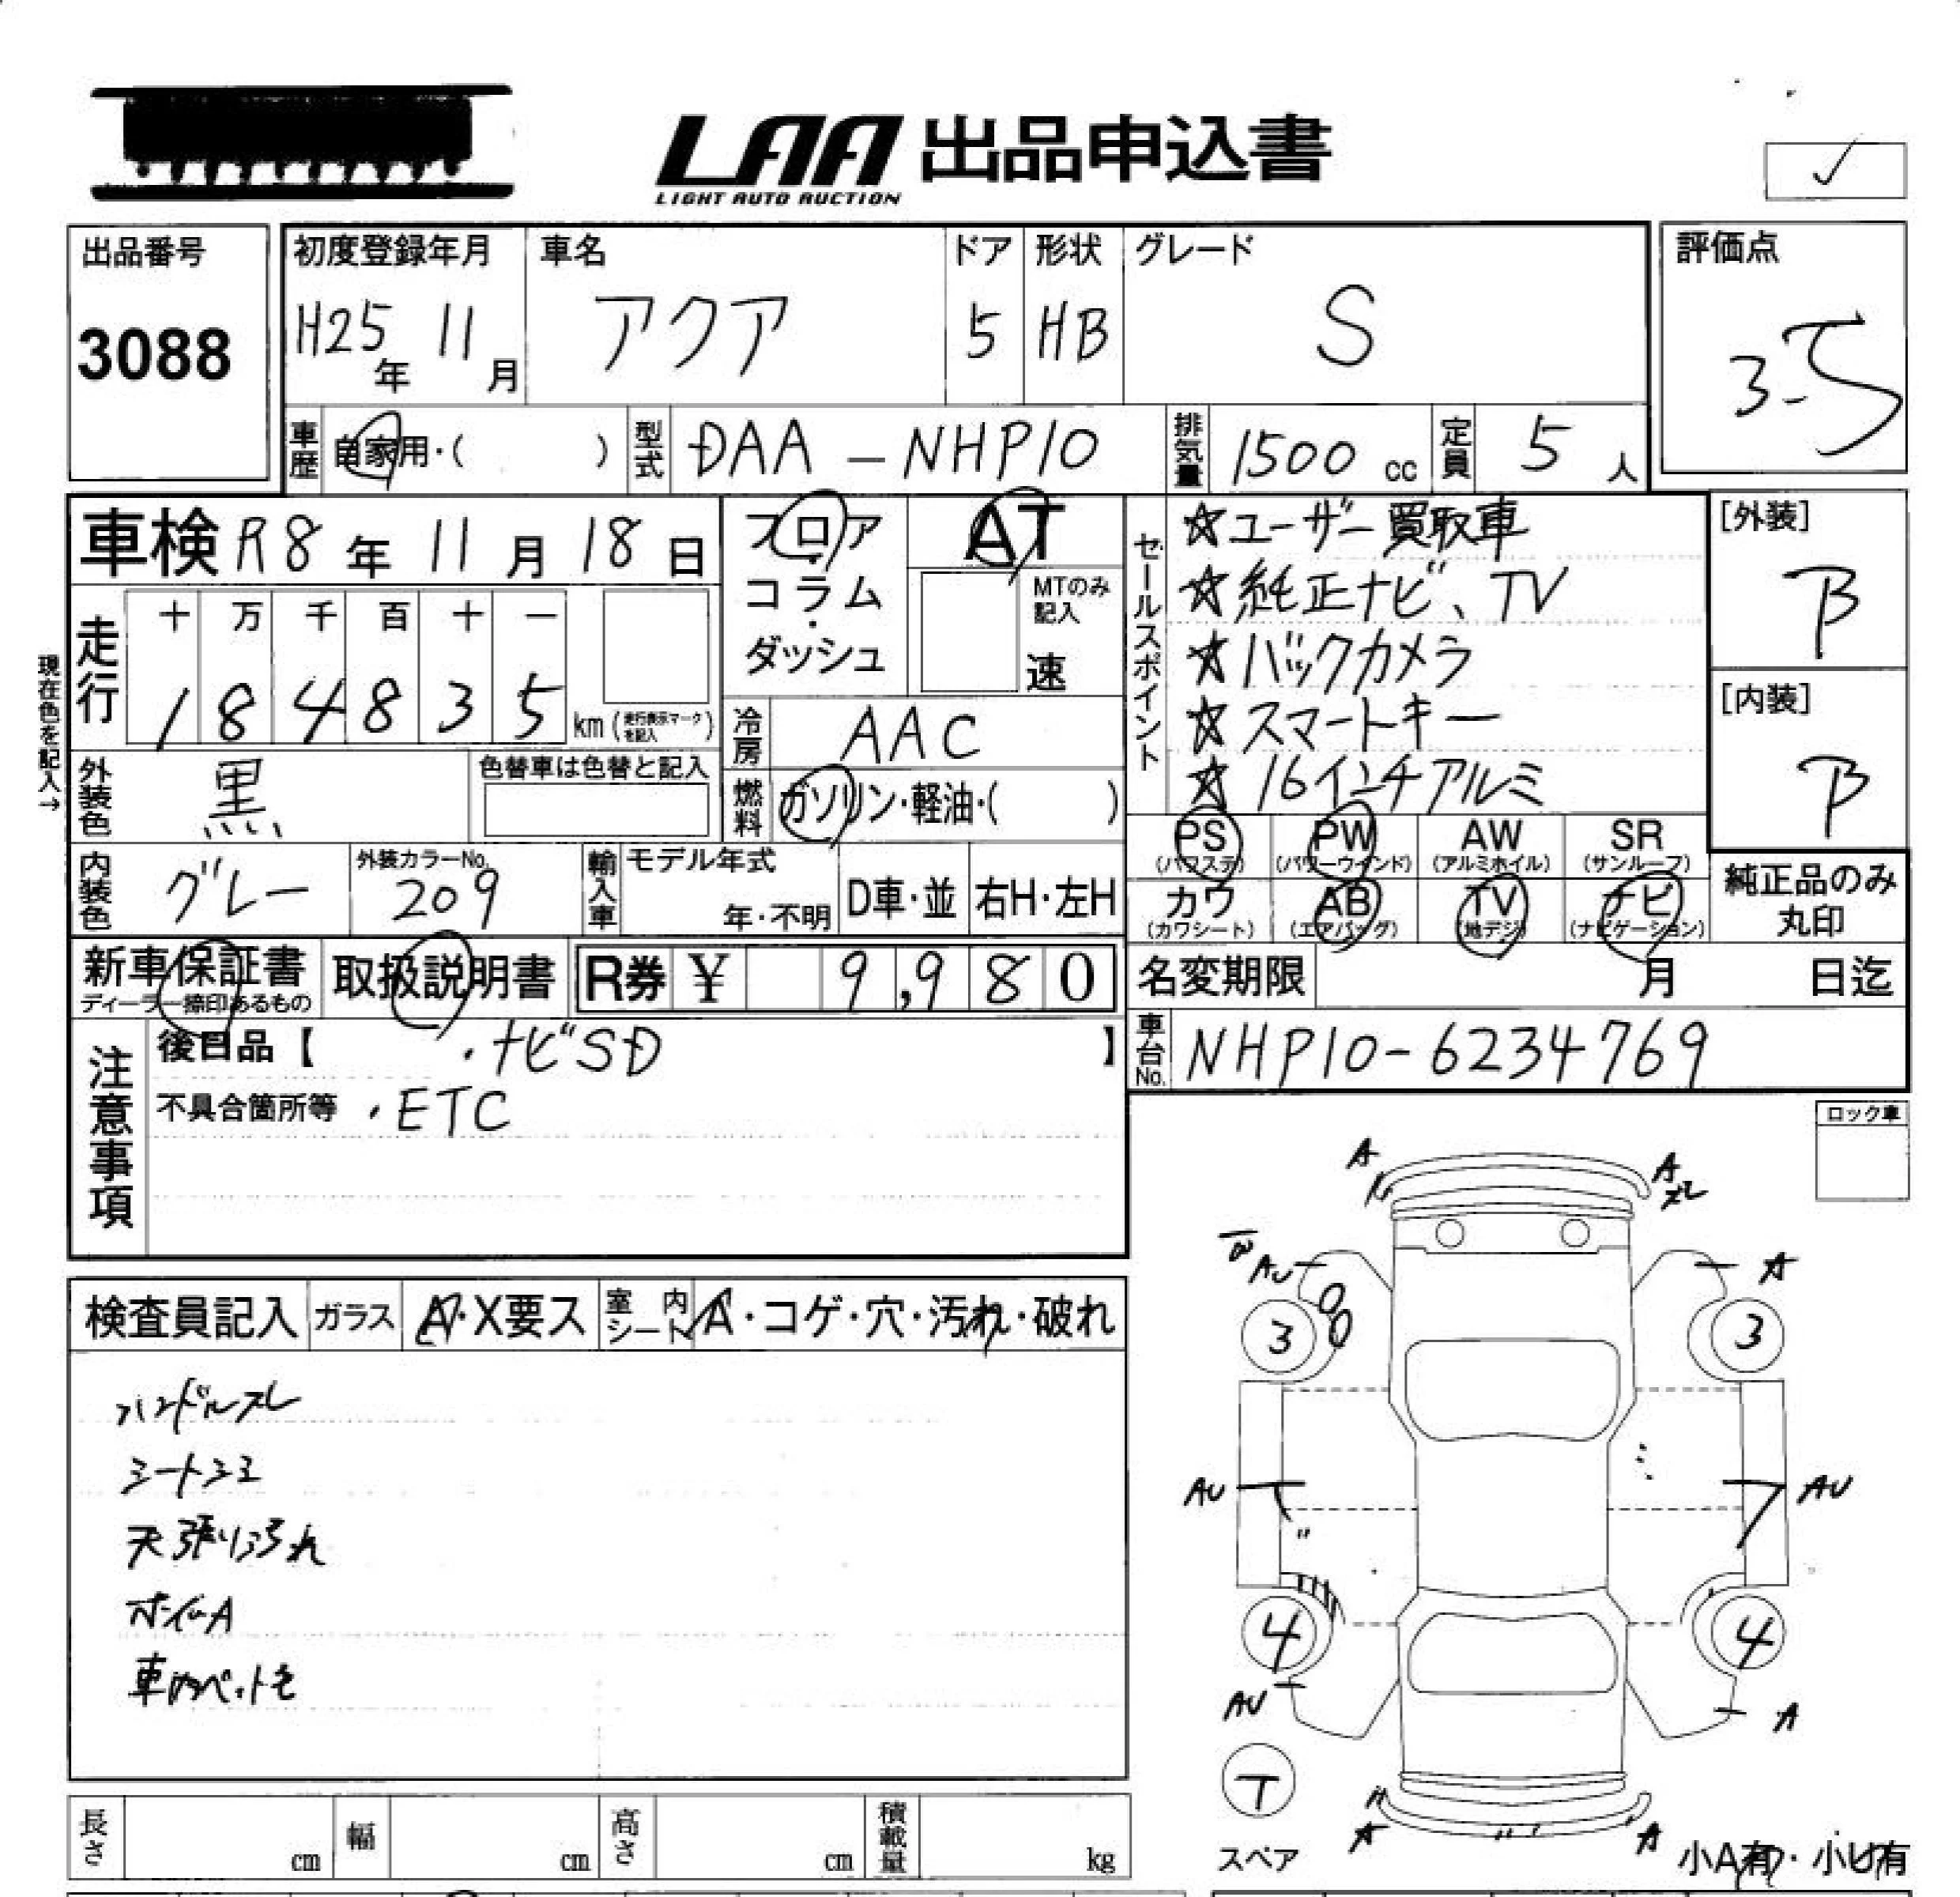 LAA 出品申込書
LIGHT AUTO AUCTION
出品番号
3088
初度登録年月
H25年 11月
車名
アクア
ドア
5
形状
HB
グレード
S
評価点
3.5
車歴
自家用・( )
型式
DAA-NHP10
排気量
1500 cc
定員
5 人
車検 R8年 11月 18日
フロア・コラム・ダッシュ
AT
MTのみ記入
速
セールスポイント
☆ユーザー買取車
☆純正ナビ、TV
☆バックカメラ
☆スマートキー
☆16インチアルミ
[外装]
B
[内装]
B
現在色を記入→
走行
十 万 千 百 十 一
1 8 4 8 3 5 km (走行表示マークを記入)
冷房
AAC
外装色
黒
色替車は色替と記入
燃料
ガソリン・軽油・( )
内装色
グレー
外装カラーNo.
209
輸入車
モデル年式
年・不明
D車・並
右H・左H
PS (パワステ)
PW (パワーウインド)
AW (アルミホイル)
SR (サンルーフ)
カワ (カワシート)
AB (エアバッグ)
TV (地デジ)
ナビ (ナビゲーション)
純正品のみ丸印
新車保証書
ディーラー捺印あるもの
取扱説明書
R券 ¥ 9,980
名変期限 月 日迄
車台No.
NHP10-6234769
注意事項
後日品【 ・ナビSD 】
不具合箇所等 ・ETC
ロック車
検査員記入
ガラス
A・X要ス
室内シート
A・コゲ・穴・汚れ・破れ
ハンドルスレ
シートシミ
天張り汚れ
ホイルA
車内ペット毛
A
A
スレ
AU
A
3
3
AU
AU
4
4
AU
A
T
スペア
A
A
小A有・小U有
長さ cm
幅 cm
高さ cm
積載量 kg